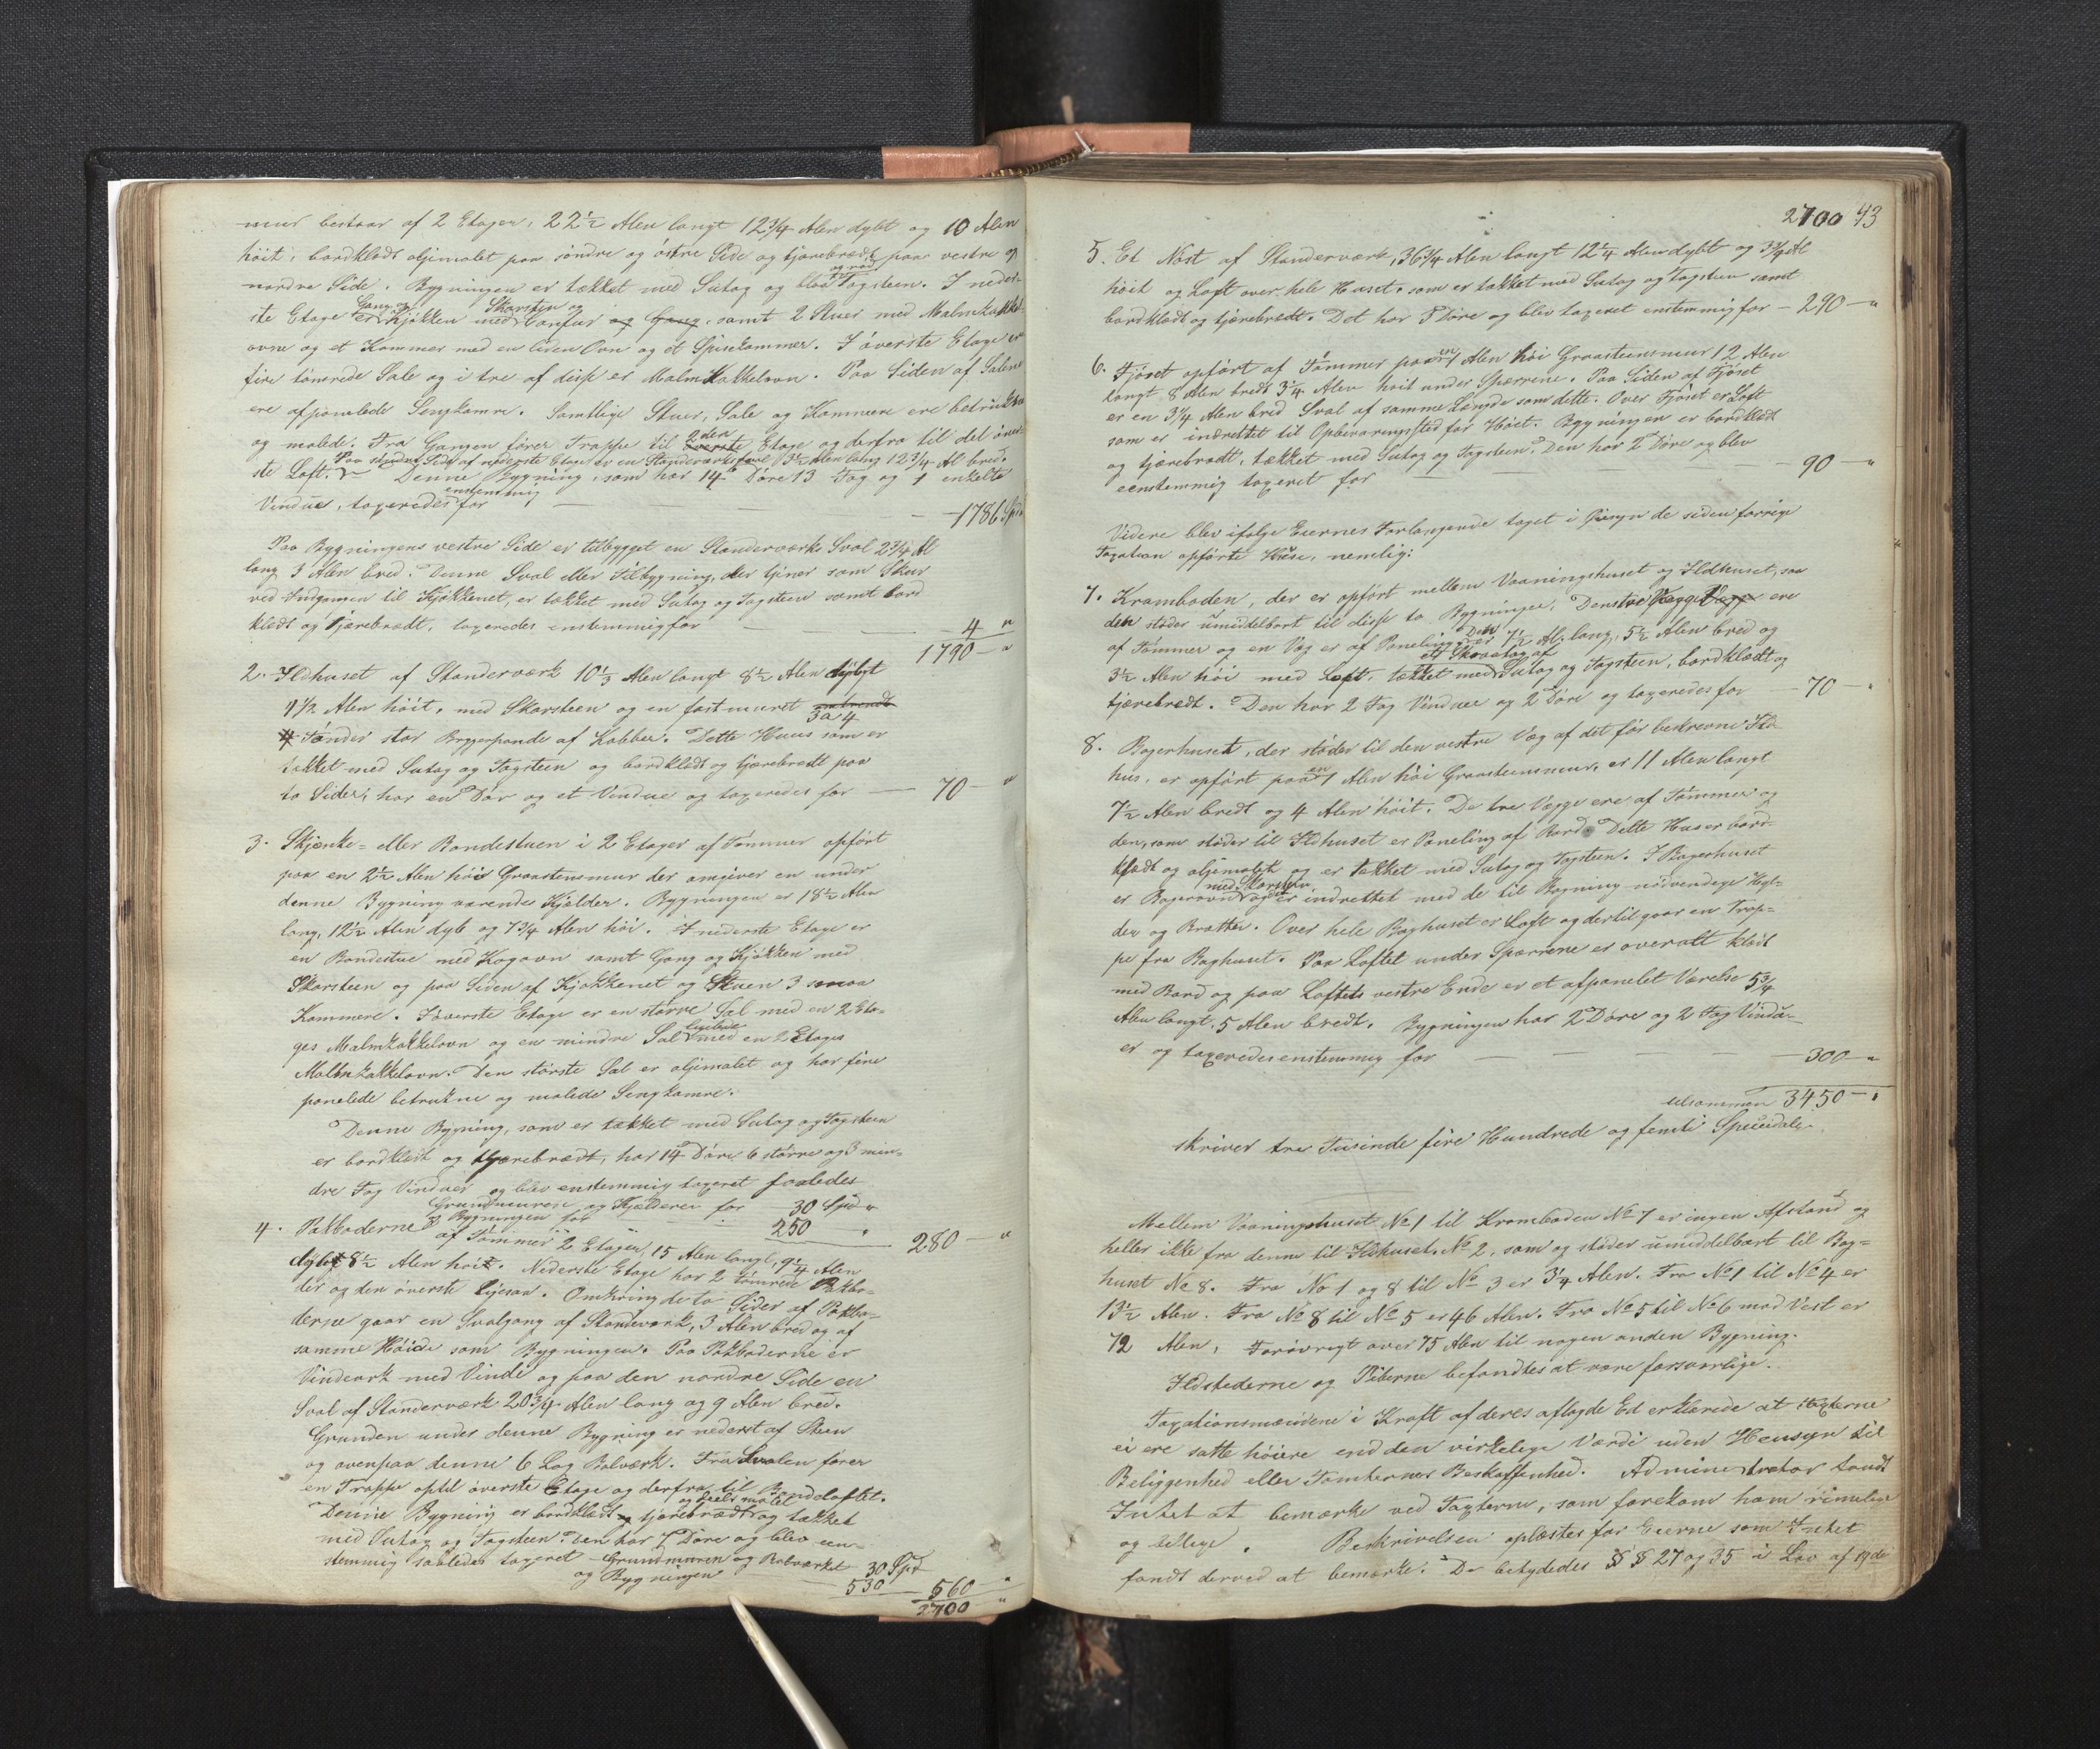 muur bestaar af 2 Etager, 22½ Alen langt 12¾ Alen dybt og 10 Alen
höit, bordklædt oljemalet paa söndre og östre Side og tjærebrædt paa vestre og
nordre Side. Bygningen er tækket med Sutag og blaa og röd Tagsteen. I neder-
ste Etage er Gang og Kjökken med Skorsteen og Comfur og Gang, samt 2 Stuer med Malmkakkel-
ovne og et Kammer med en liden Ovn og et Spisekammer. I överste Etage er
fire tömrede Sale og i tre af disse er Malmkakkelovn. Paa Siden af Salene
ere afpanelede Sengkamre. Samtlige Stuer, Sale og Kammere ere betrukne
og malede. Fra Gangen förer Trappe til överste 2den Etage og derfra til det över-
ste Loft. Paa söndre Side af nederste Etage er en Standerværks 3½ Alen lang 12¾ Al bred.
Denne Bygning, som har 14 Döre 13 Fag og 1 enkelte
Vindue, taxeredes enstemmig for — 1786 Spd
Paa Bygningens vestre Side er tilbygget en Standerværks Sval 2¾ Al
lang 3 Alen bred. Denne Sval eller Tilbygning, der tjener som Skur
ved Indgangen til Kjökkenet, er tækket med Sutag og Tagsteen samt bord
klædt og tjærebrædt, taxeredes enstemmig for — 4 "
1790 — "
2. Ildhuset af Standerværk 10⅓ Alen langt 8½ Alen dybt
4½ Alen höit, med Skorsteen og en fastmuret
3 a 4
Tönder stor Bryggerpande af Kobber. Dette Huus som er
tækket med Sutag og Tagsteen og bordklædt og tjærebrædt paa
to Sider, har en Dör og et Vindue og taxeredes for — 70 — "
3. Skjænke- eller Bondestuen i 2 Etager af Tömmer opfört
paa en 2½ Alen höi Graasteensmur der omgiver en under
denne Bygning værende Kjælder. Bygningen er 18½ Alen
lang, 12½ Alen dyb og 7¾ Alen höi. I nederste Etage er
en Bondestue med Kogovn samt Gang og Kjökken med
Skorsteen og paa Siden af Kjökkenet og Stuen 3 smaa
Kammere. I överste Etage er en större Sal med en 2 Eta-
ges Malmkakkelovn og en mindre Sal ligeledes med en 2 Etages
Malmkakkelovn. Den störste Sal er oljemalet og har fire
panelede betrukne og malede Sengkamre.
Denne Bygning, som er tækket med Sutag og Tagsteen
er bordklædt og tjærebrædt, har 14 Döre 6 större og 3 min-
dre Fag Vinduer og blev enstemmig taxeret saaledes
Grundmuren og Kjælderen for 30 Spd "
og Bygningen for — 250 " 280 — "
4. Pakboderne af Tömmer 2 Etager, 15 Alen langt, 9¼ Alen
dybt 8½ Alen höit. Nederste Etage har 2 tömrede Pakbo-
der og den överste ligesaa. Omkring de to Sider af Pakbo-
derne gaar en Svalgang af Standerværk, 3 Alen bred og af
samme Höide som Bygningen. Paa Pakboderne er
Vindeark med Vinde og paa den nordre Side en
Sval af Standerværk 20¾ Alen lang og 9 Alen bred.
Grunden under denne Bygning er nederst af Steen
og ovenpaa denne 6 Lag Bolværk. Fra Svalen förer
en Trappe optil överste Etage og derfra til Bondeloftet.
Denne Bygning er bordklædt og tjærebrædt og deels malet og tækket
med Sutag og Tagsteen. Den har 7 Döre og blev een-
stemmig saaledes taxeret — Grundmuren og Bolværket 30 Spd
og Bygningen 530 — 560 — "
2700 "
2700 43
5. Et Nöst af Standerværk, 36¾ Alen langt 12¼ Alen dybt og 3¾ Al
höit og Loft over hele Huset, som er tækket med Sutag og Tagsteen samt
bordklædt og tjærebrædt. Det har 5 Döre og blev taxeret enstemmig for — 290 — "
6. Fjöset opfört af Tömmer paa en 1 Alen höi Graasteensmur 12 Alen
langt 8 Alen bredt 3¼ Alen höit under Sperrene. Paa Siden af Fjöset
er en 3¼ Alen bred Sval af samme Længde som dette. Over Fjöset er Loft
som er indrettet til Opbevaringssted for Höet. Bygningen er bordklædt
og tjærebrædt, tækket med Sutag og Tagsteen. Den har 2 Döre og blev
eenstemmig taxeret for — 90 — "
Videre blev ifölge Eiernes Forlangende taget i Öiesyn de siden forrige
Taxation opförte Huse, nemlig:
7. Kramboden, der er opfört mellem Vaaningshuset og Ildhuset, saa
den stöder umiddelbart til disse to Bygninger. Dens to Vægge ere
af Tömmer og en Væg er af Paneling. Den er 7½ Al. lang, 5½ Alen bred og
3½ Alen höi med Loft, tækket med Skraatag af Sutag og Tagsteen, bordklædt og
tjærebrædt. Den har 2 Fag Vinduer og 2 Döre og taxeredes for — 70 — "
8. Bagerhuset, der stöder til den vestre Væg af det för beskrevne Ild
hus, er opfört paa en 1 Alen höi Graasteensmur, er 11 Alen langt
7½ Alen bredt og 4 Alen höit. De tre Vægge ere af Tömmer og
den, som stöder til Ildhuset er Paneling af Bord. Dette Hus er bord-
klædt og oljemalet og er tækket med Sutag og Tagsteen. I Bagerhuset
er Bagerovn med Skorsteen og er indrettet med de til Bagning nödvendige Hyl-
der og Brætter. Over hele Baghuset er Loft og dertil gaar en Trap-
pe fra Baghuset. Paa Loftet under Sperrene er overalt klædt
med Bord og paa Loftets vestre Ende er et afpanelet Værelse 5¾
Alen langt, 5 Alen bredt. Bygningen har 2 Döre og 2 Fag Vindu-
er og taxeredes enstemmig for — 300 — "
tilsammen 3450 — "
skriver tre Tusinde fire Hundrede og femti Speciedaler.
Mellem Vaaningshuset No 1 til Kramboden No 7 er ingen Afstand og
heller ikke fra denne til Ildhuset No 2, som og stöder umiddelbart til Bag-
huset No 8. Fra No 1 og 8 til No 3 er 3¼ Alen. Fra No 1 til No 4 er
13½ Alen. Fra No 8 til No 5 er 46 Alen. Fra No 5 til No 6 mod Vest er
72 Alen, Forövrigt over 75 Alen til nogen anden Bygning.
Ildstederne og Piberne befandtes at være forsvarlige.
Taxationsmændene i Kraft af deres aflagde Ed erklærede at Taxterne
ei ere satte höiere end den virkelige Værdi uden Hensyn til
Beliggenhed eller Tomternes Beskaffenhed. Administrator fandt
Intet at bemærke ved Taxterne, som forekom ham rimelige
og billige. Beskrivelsen oplæstes for Eierne som Intet
fandt derved at bemærke. De betydedes §§ 27 og 35 i Lov af 19de